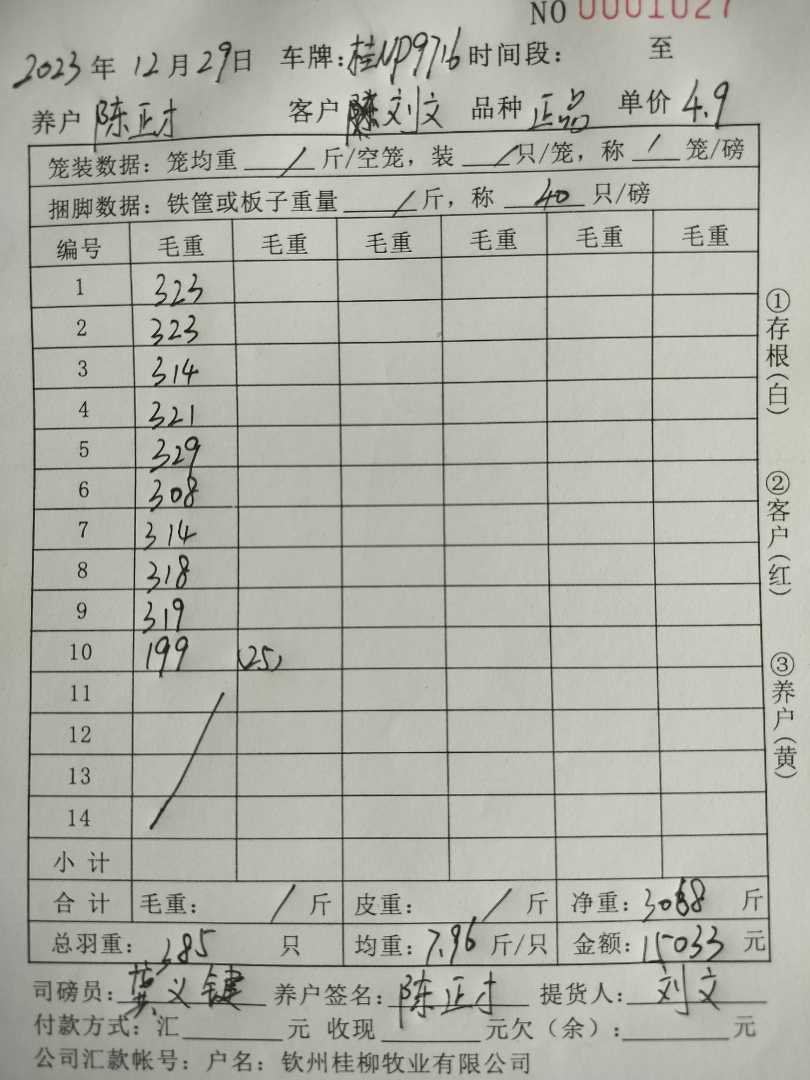 NO 0001027
2023年12月29日 车牌:桂NP9716 时间段: 至
养户 陈正才 客户 刘文 品种 正品 单价 4.9
笼装数据: 笼均重 / 斤/空笼, 装 / 只/笼, 称 / 笼/磅
捆脚数据: 铁筐或板子重量 / 斤, 称 40 只/磅
编号 毛重 毛重 毛重 毛重 毛重 毛重
1 323
2 323
3 314
4 321
5 329
6 308
7 314
8 318
9 319
10 199 (25)
11
12
13
14
小计
合计 毛重: / 斤 皮重: / 斤 净重: 3068 斤
总羽重: 385 只 均重: 7.96 斤/只 金额: 15033 元
司磅员: 黄义键 养户签名: 陈正才 提货人: 刘文
付款方式: 汇 元 收现 元欠(余): 元
公司汇款帐号: 户名: 钦州桂柳牧业有限公司
①存根(白)
②客户(红)
③养户(黄)